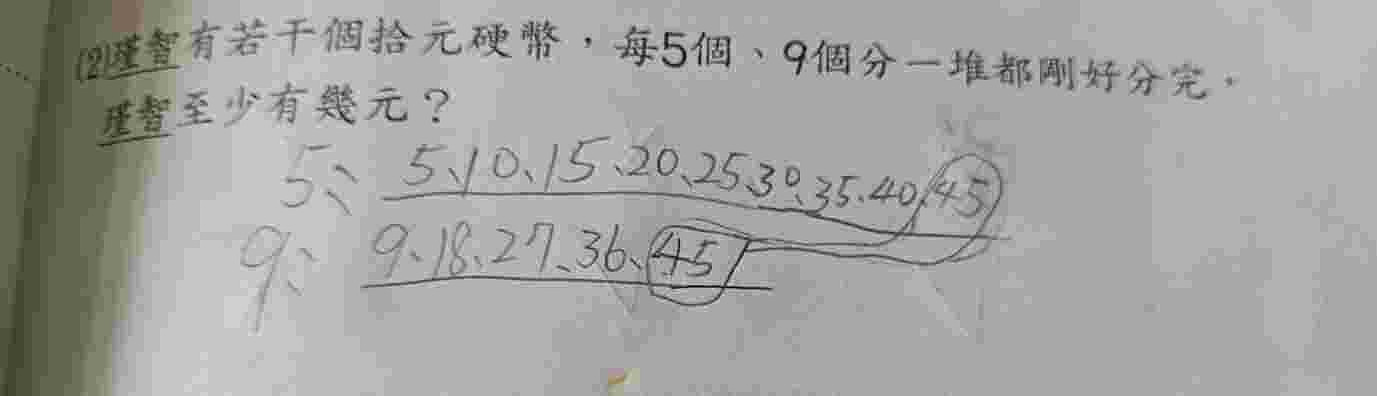 (2)瑾智有若干個拾元硬幣，每5個、9個分一堆都剛好分完，
瑾智至少有幾元？
5、 5、10、15、20、25、30、35、40、45
9、 9、18、27、36、45